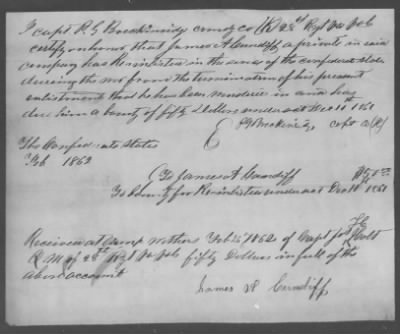 I capt P. G Breckinridge comdg co (K) 28th Regt Va Vols
certify on honor that James A Cundiff a private in said
company has Reinlisted in the service of the confederate states
during the war from the termination of his present
enlistment that he has been mustered in and has
due him a bounty of fifty Dollars under act Dec 11th 1861
P G Breckinridge capt co (K)
The Confederate States
Feb 1862
To James A. Cundiff
To Bounty for Reinlisted under act Dec 11th 1861 $50.00
Received at Camp Withers Feb 1862 of Capt Holt
Q. M of 28th Regt Va Vols fifty Dollars in full of the
above account
James A Cundiff